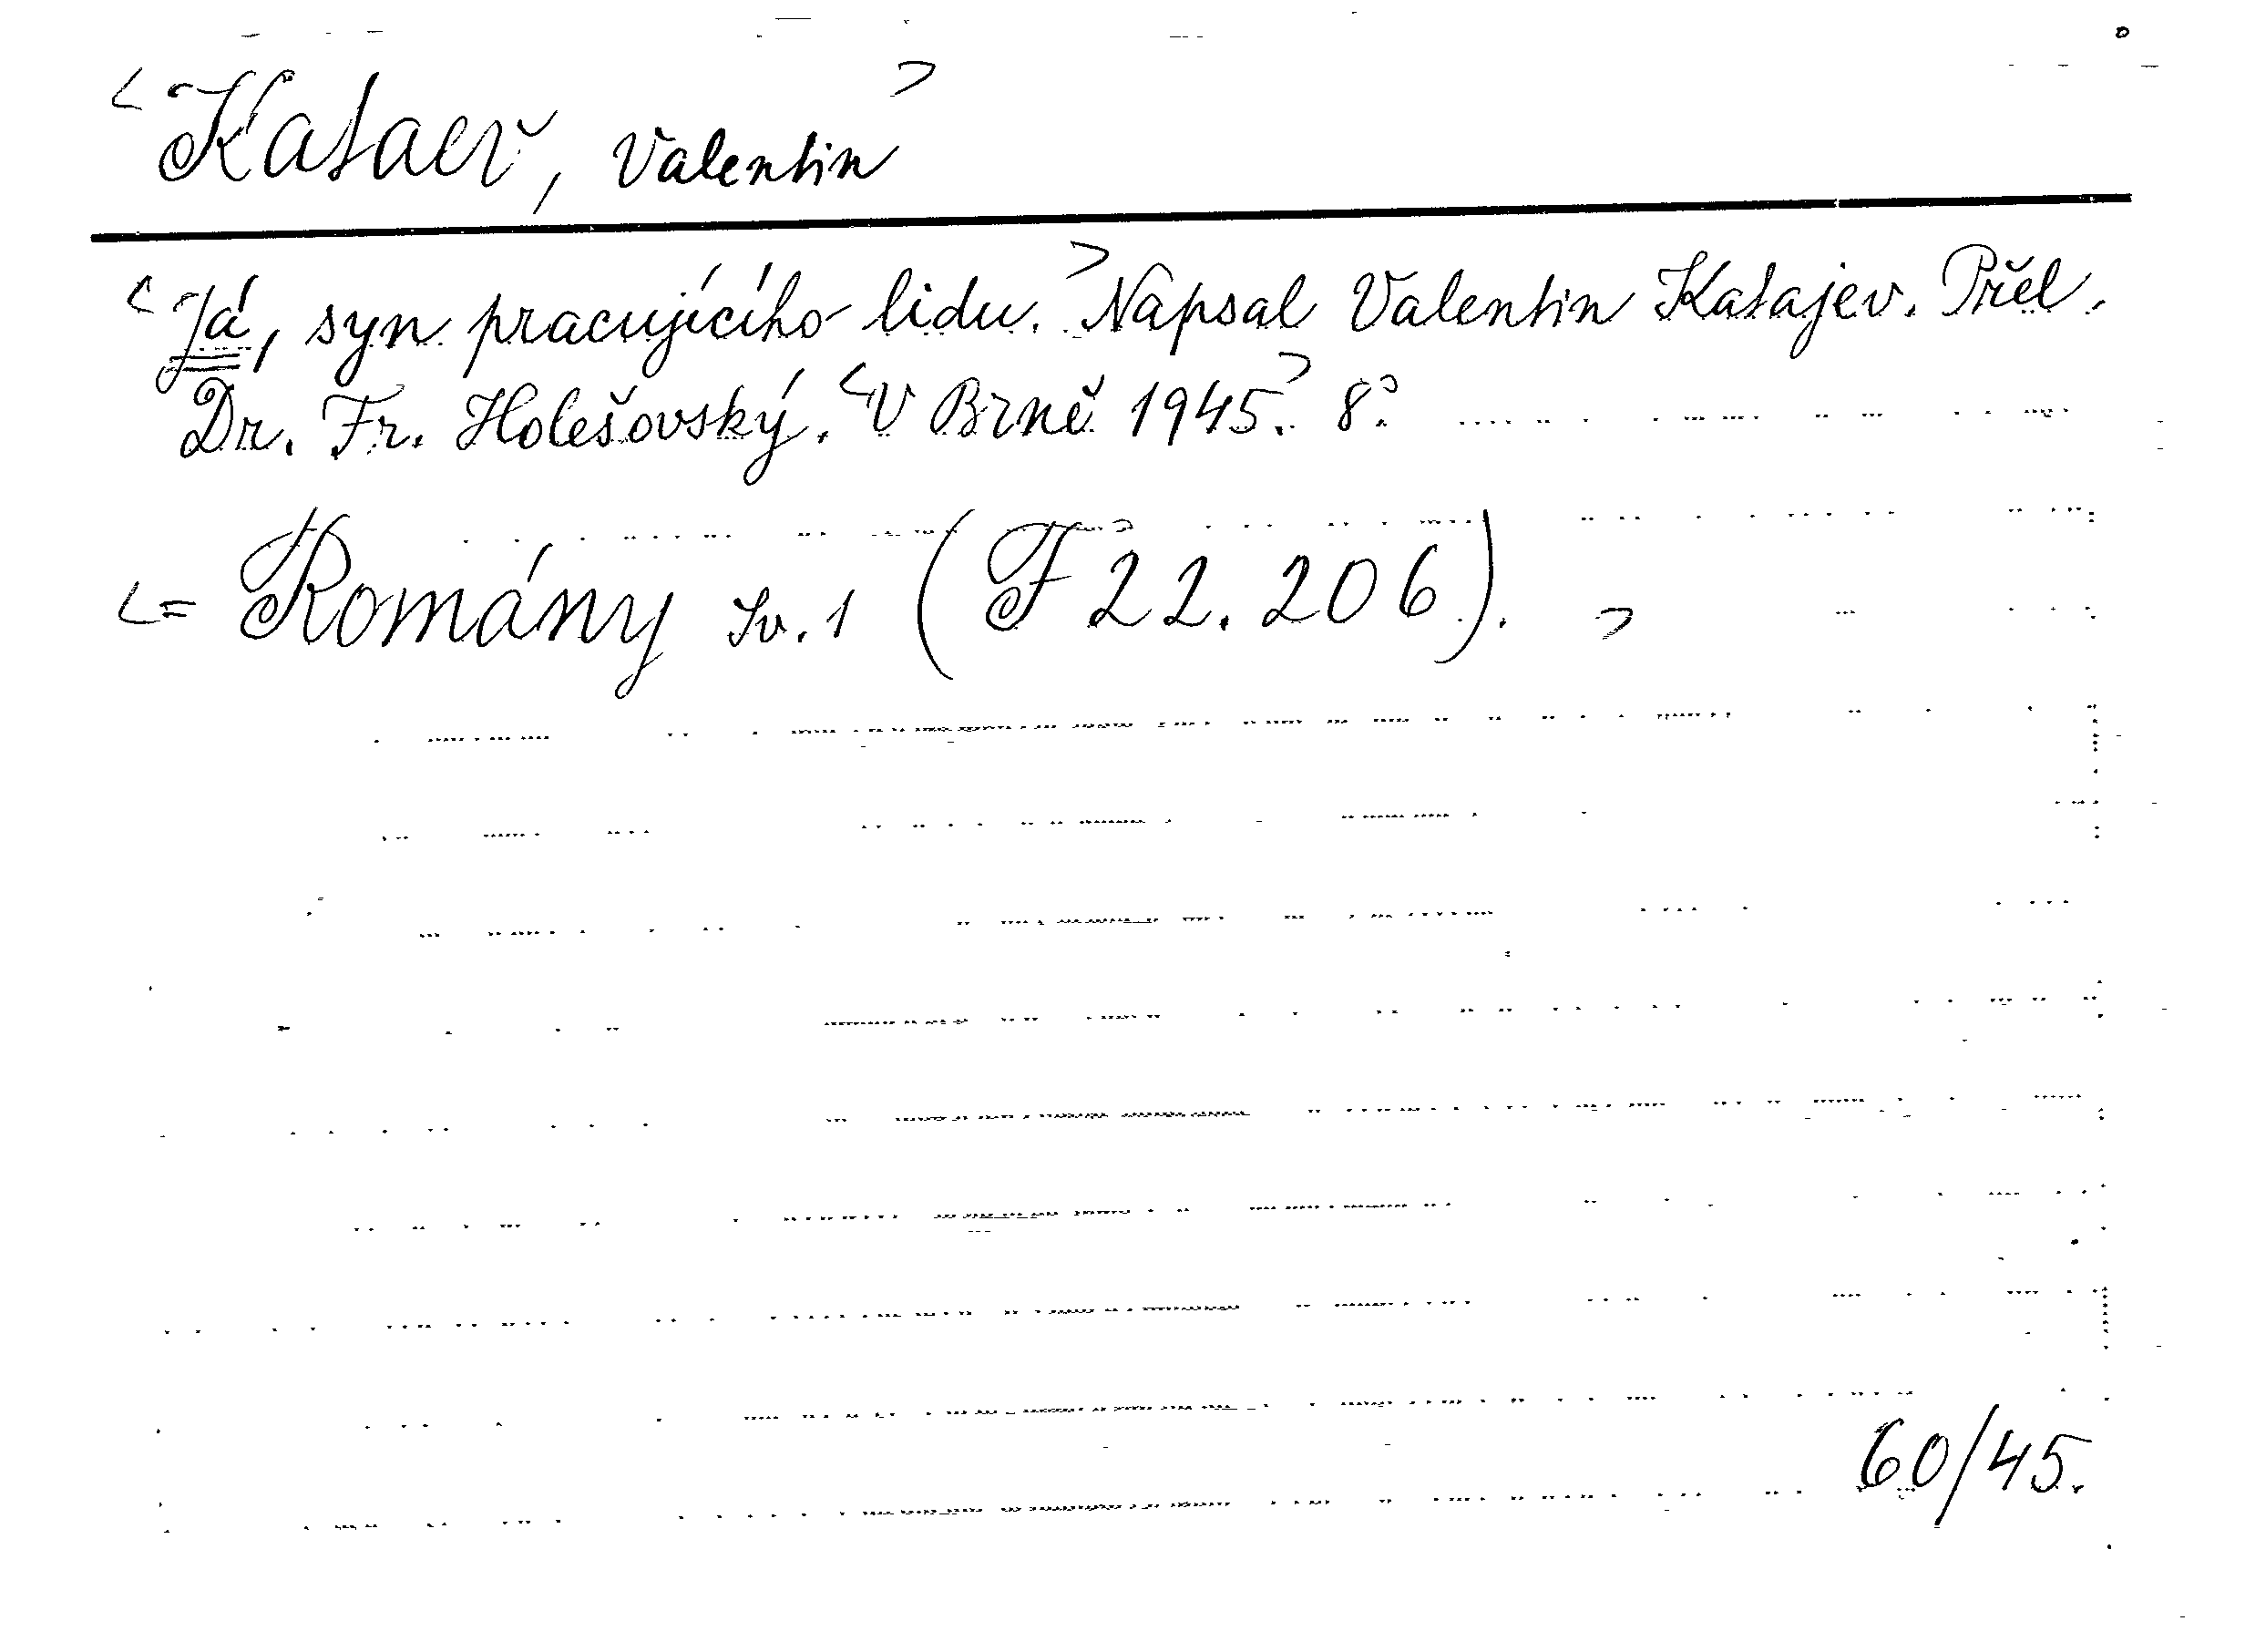 <Kataev, Valentin>
<Já, syn pracujícího lidu.> Napsal Valentin Katajev. Přel.
Dr. Fr. Holešovský. <V Brně 1945.> 8°.
<= Romány sv. 1 (F 22.206). >
60/45.